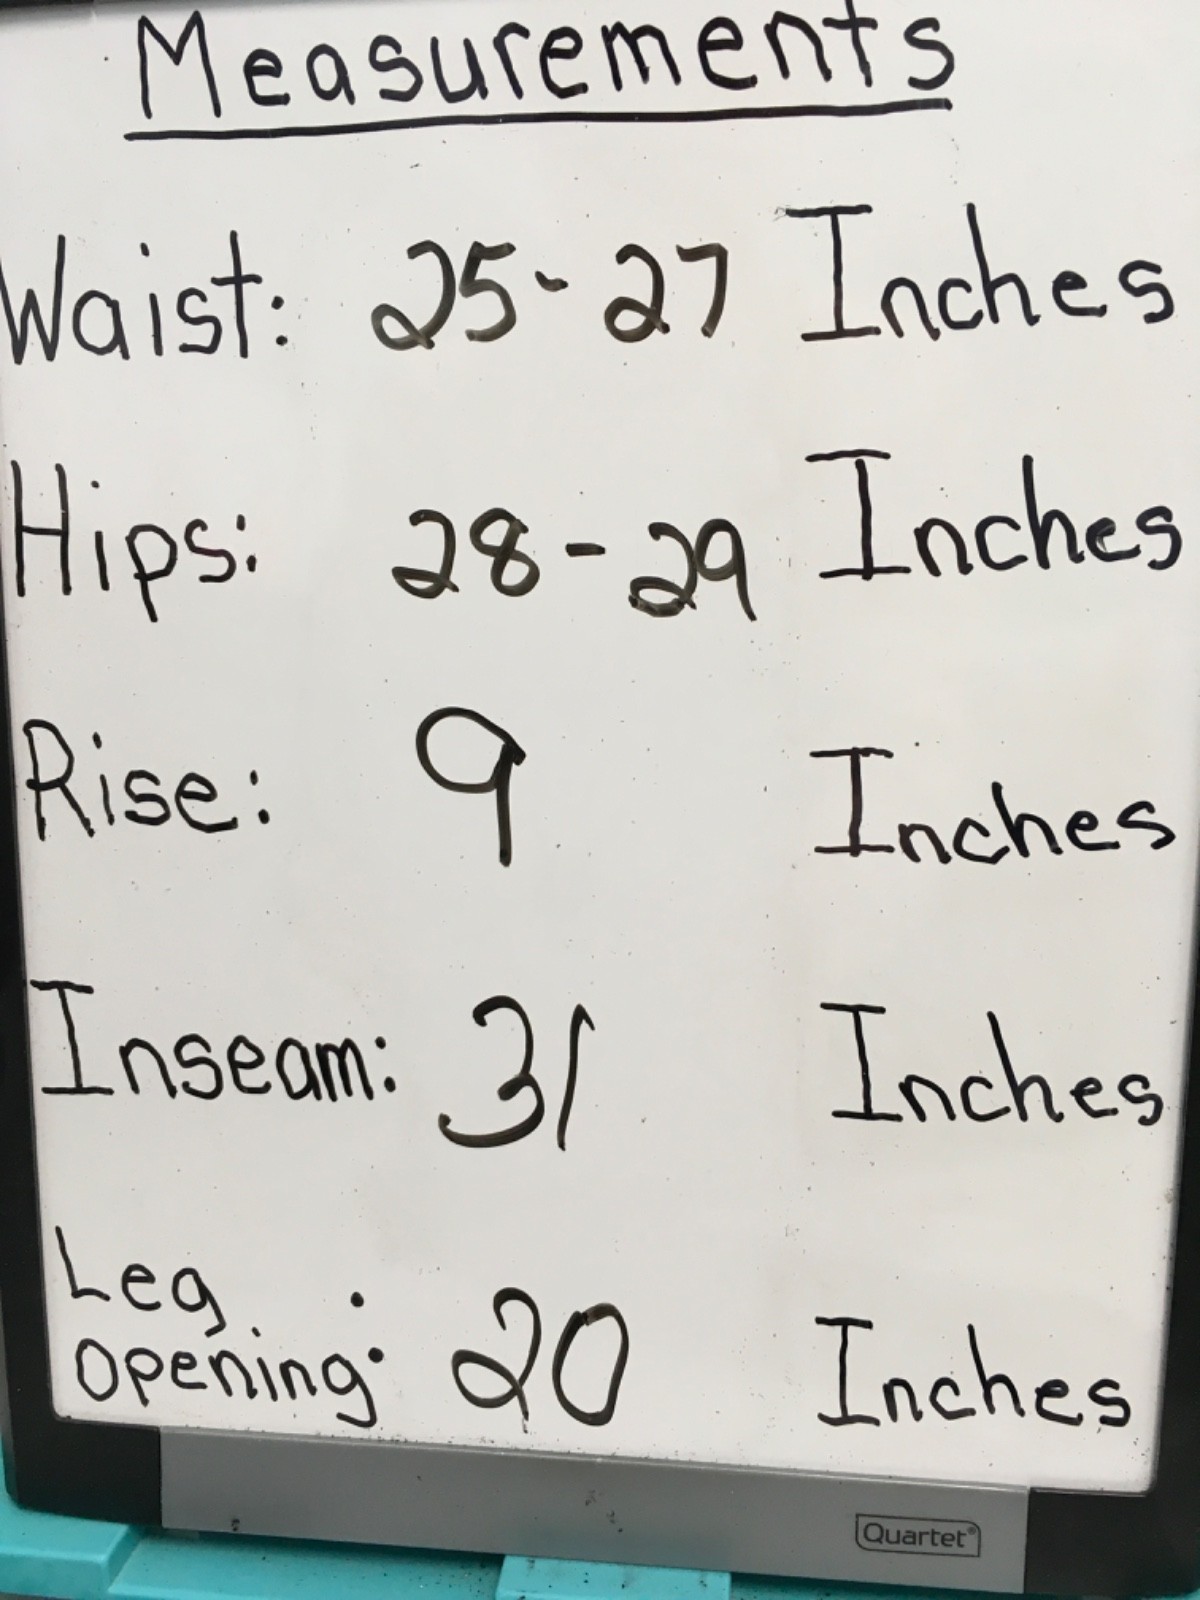 Measurements
Waist: 25-27 Inches
Hips: 28-29 Inches
Rise: 9 Inches
Inseam: 31 Inches
Leg
Opening: 20 Inches
Quartet®